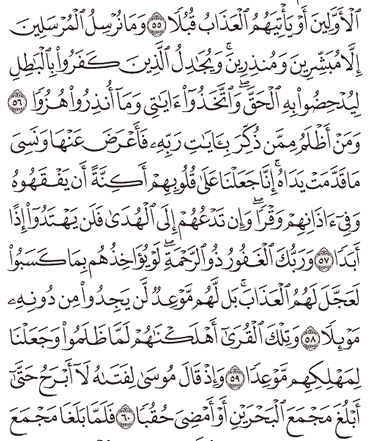 ٱلْأَوَّلِينَ أَوْ يَأْتِيَهُمُ ٱلْعَذَابُ قُبُلًا ۝٥٥ وَمَا نُرْسِلُ ٱلْمُرْسَلِينَ
إِلَّا مُبَشِّرِينَ وَمُنذِرِينَ ۚ وَيُجَٰدِلُ ٱلَّذِينَ كَفَرُوا۟ بِٱلْبَٰطِلِ
لِيُدْحِضُوا۟ بِهِ ٱلْحَقَّ ۖ وَٱتَّخَذُوٓا۟ ءَايَٰتِى وَمَآ أُنذِرُوا۟ هُزُوًا ۝٥٦
وَمَنْ أَظْلَمُ مِمَّن ذُكِّرَ بِـَٔايَٰتِ رَبِّهِۦ فَأَعْرَضَ عَنْهَا وَنَسِىَ
مَا قَدَّمَتْ يَدَاهُ ۚ إِنَّا جَعَلْنَا عَلَىٰ قُلُوبِهِمْ أَكِنَّةً أَن يَفْقَهُوهُ
وَفِىٓ ءَاذَانِهِمْ وَقْرًا ۖ وَإِن تَدْعُهُمْ إِلَى ٱلْهُدَىٰ فَلَن يَهْتَدُوٓا۟ إِذًا
أَبَدًا ۝٥٧ وَرَبُّكَ ٱلْغَفُورُ ذُو ٱلرَّحْمَةِ ۖ لَوْ يُؤَاخِذُهُم بِمَا كَسَبُوا۟
لَعَجَّلَ لَهُمُ ٱلْعَذَابَ ۚ بَل لَّهُم مَّوْعِدٌ لَّن يَجِدُوا۟ مِن دُونِهِۦ
مَوْئِلًا ۝٥٨ وَتِلْكَ ٱلْقُرَىٰٓ أَهْلَكْنَٰهُمْ لَمَّا ظَلَمُوا۟ وَجَعَلْنَا
لِمَهْلِكِهِم مَّوْعِدًا ۝٥٩ وَإِذْ قَالَ مُوسَىٰ لِفَتَىٰهُ لَآ أَبْرَحُ حَتَّىٰٓ
أَبْلُغَ مَجْمَعَ ٱلْبَحْرَيْنِ أَوْ أَمْضِىَ حُقُبًا ۝٦٠ فَلَمَّا بَلَغَا مَجْمَعَ